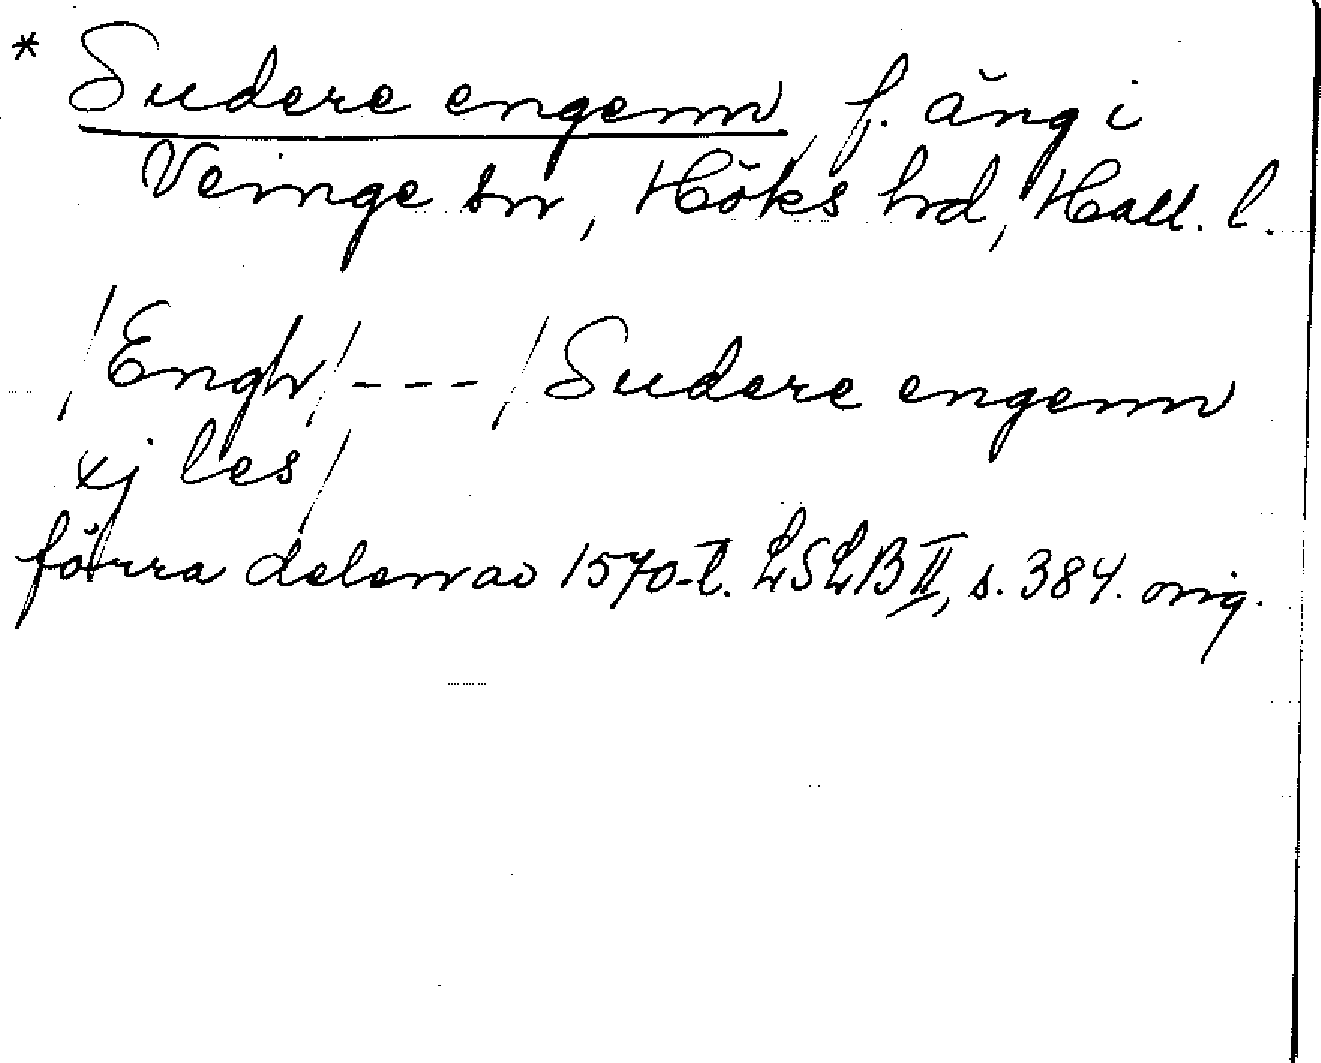 * Sudere engenn, f. äng i
Veinge sn, Höks hd, Hall. l.
/Engh/---/Sudere engenn
xj les/
förra delen av 1570-t. LSLB II, s. 384. orig.